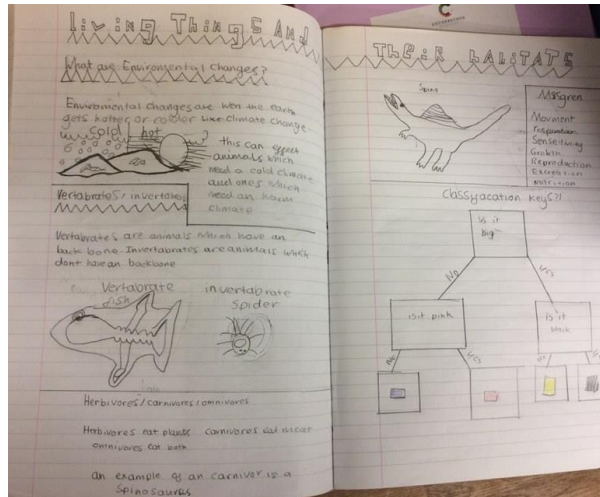 living Things And
What are Enviromental changes?
Enviromental changes are wen the earth
gets hotter or colder like climate change
cold hot
this can effect
animals which
need a cold climate
and ones which
need an warm
climate
Vertabrates/invertabrates
Vertabrates are animals which have an
back bone. Invertabrates are animals which
dont have an backbone
Vertabrate
fish
invertabrate
spider
Herbivores/carnivores/omnivores
Herbivores eat plants carnivores eat meat
omnivores eat both
an example of an carnivor is a
Spinosaurus
THEIR HABITATS
Spino
Mrsgren
Movment
respiration
Sensitivity
Growth
Reproduction
Excretion
nutrition
Classyfacation keys?!
Is it
big
No
Yes
is it pink
Is it
black
No
Yes
No